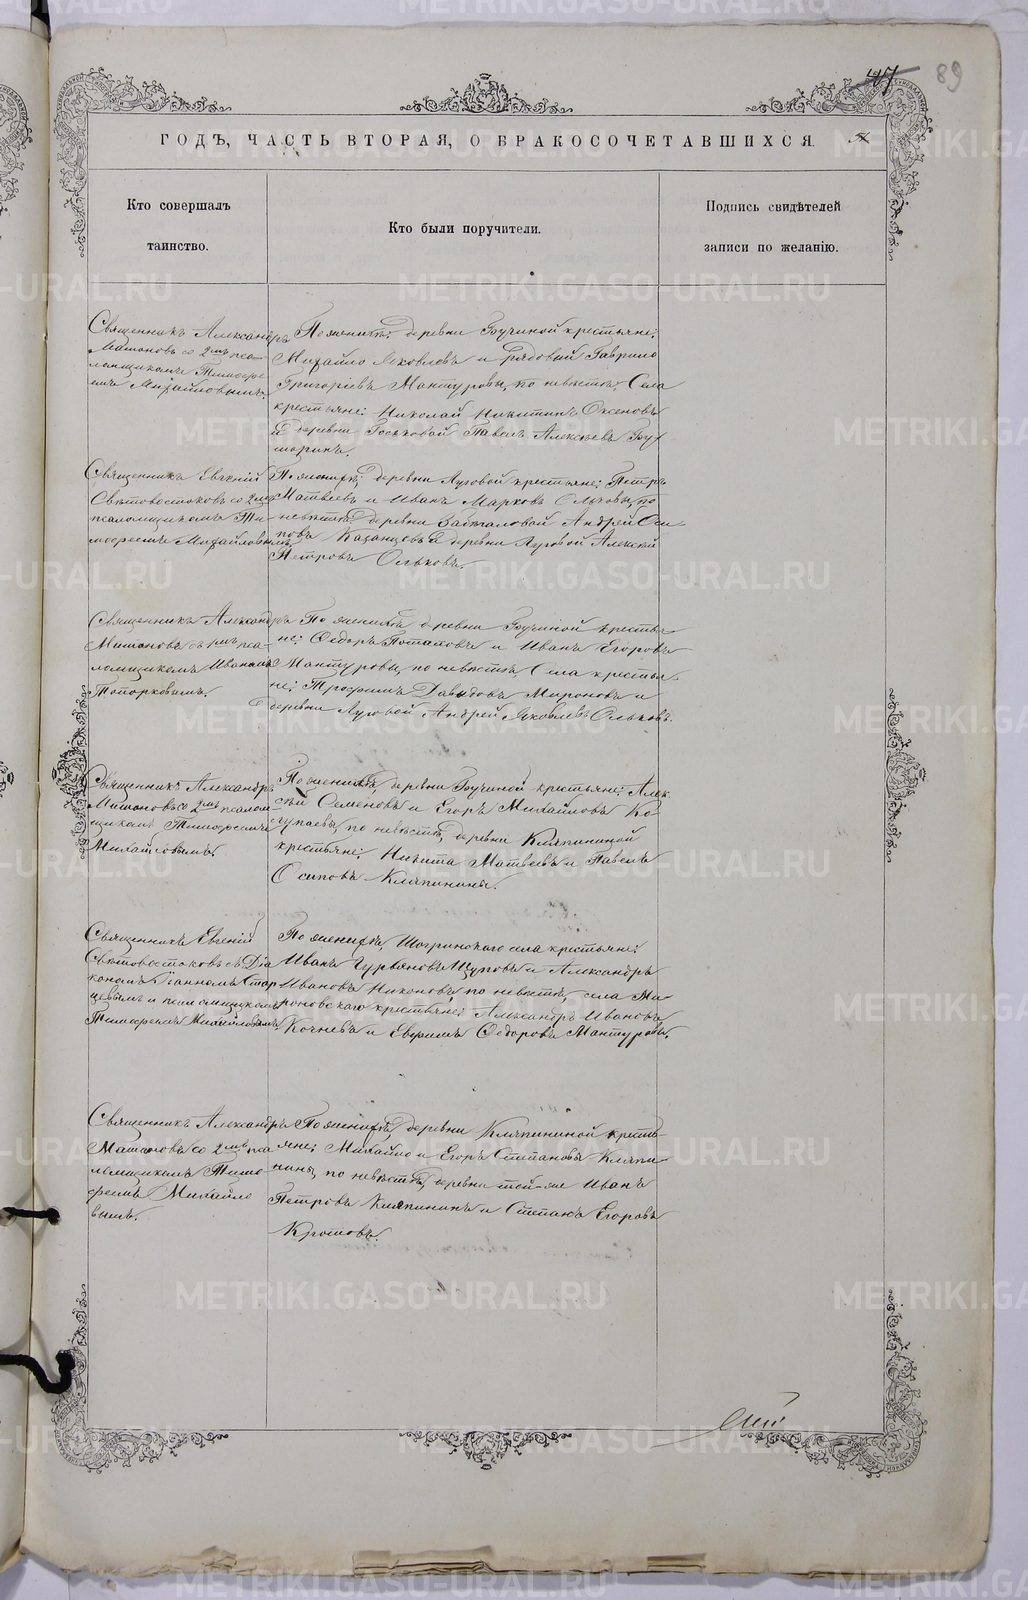 89
ГОДЪ, ЧАСТЬ ВТОРАЯ, О БРАКОСОЧЕТАВШИХСЯ.
Кто совершалъ
таинство.
Кто были поручители.
Подпись свидѣтелей
записи по желанію.
Священникъ Александръ
Мамоновъ со 2мъ пса-
ломщикомъ Тимофе-
емъ Михайловымъ.
По женихѣ: деревни Бучиной крестьяне:
Михайло Яковлевъ и рядовый Гаврило
Григорьевъ Мантуровы, по невѣстѣ: Села
крестьяне: Николай Никитинъ Оксеновъ
и деревни Павелъ Алексѣевъ
Священникъ Евгений
Свѣтовостоковъ со 2мъ
псаломщикомъ Ти-
мофеемъ Михайловымъ
По женихѣ; деревни Луговой крестьяне: Петръ
Матвеевъ и Иванъ Марковъ Ольковы, по
невѣстѣ: деревни Андрей Оси-
повъ Казанцевъ и деревни Луговой Алексѣй
Петровъ Ольковъ.
Священникъ Александръ
Мамоновъ съ 1мъ пса-
ломщикомъ Иваномъ
Топорковымъ.
По женихѣ деревни Бучиной крестья-
не: Ѳедоръ Потаповъ и Иванъ Егоровъ
Мантуровы, по невѣстѣ, Села крестья-
не: Трофимъ Давыдовъ Мироновъ и
деревни Луговой Андрей Яковлевъ Ольковъ.
Священникъ Александръ
Мамоновъ со 2мъ псалом-
щикомъ Тимофеемъ
Михайловымъ.
По женихѣ, деревни Бучиной крестьяне: Алек-
сѣй Семеновъ и Егоръ Михайловъ Ко-
чупаевы, по невѣстѣ, деревни Кляпининой
крестьяне: Никита Матвеевъ и Павелъ
Осиповъ Кляпинины.
Священникъ Евгеній
Свѣтовостоковъ съ Діа-
кономъ Іоанномъ Стар-
цевымъ и псаломщикомъ
Тимофеемъ Михайловымъ
По женихѣ, Шогринскаго села крестьяне:
Иванъ Гурьяновъ Щуповъ и Александръ
Ивановъ Никоновъ, по невѣстѣ, села Ми-
роновскаго крестьяне: Александръ Ивановъ
Кочневъ и Ефимъ Ѳедоровъ Мантуровы.
Священникъ Александръ
Мамоновъ со 2мъ пса-
ломщикомъ Тимо-
феемъ Михайло-
вымъ.
По женихѣ, деревни Кляпининой кресть-
яне: Михайло и Егоръ Степановы Кляпи-
нины, по невѣстѣ, деревни той-же Иванъ
Петровъ Кляпининъ и Степанъ Егоровъ
Кротовъ.
METRIKI.GASO-URAL.RU